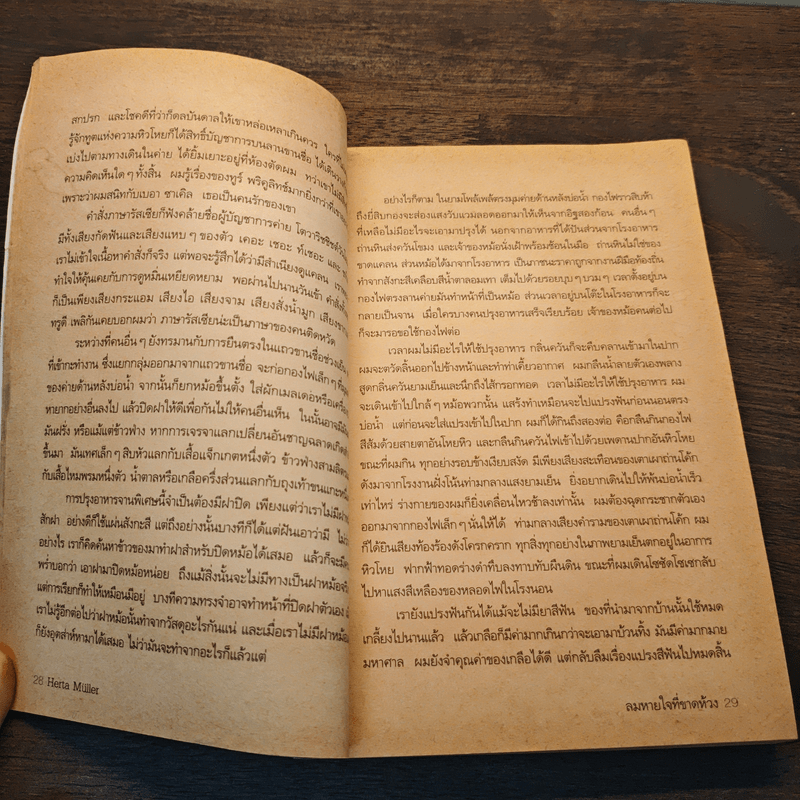 สกปรก และโชคดีที่ว่าก็ดลบันดาลให้เขาหล่อเหลาเกินควร ใคร
รู้จักทูตแห่งความหิวโหยก็ได้สิทธิ์บัญชาการบนลานขานชื่อ ได้เดิน
เบ่งไปตามทางเดินในค่าย ได้ยิ้มเยาะอยู่ที่ห้องตัดผม ทว่าเขาไม่มี
ความคิดเห็นใด ๆ ทั้งสิ้น ผมรู้เรื่องของทูร์ พริคูลิทช์มากยิ่งกว่าที่เขา
เพราะว่าผมสนิทกับเบอา ซาเคิล เธอเป็นคนรักของเขา
คำสั่งภาษารัสเซียก็ฟังคล้ายชื่อผู้บัญชาการค่าย โตวาริชชิชต์
มีทั้งเสียงกัดฟันและเสียงแหบ ๆ ของตัว เคอะ เชอะ ท์เชอะ และ
เราไม่เข้าใจเนื้อหาคำสั่งก็จริง แต่พอจะรู้สึกได้ว่ามีสำเนียงดูแคลน เรา
ทำใจให้คุ้นเคยกับการดูหมิ่นเหยียดหยาม พอผ่านไปนานวันเข้า คำสั่ง
ก็เป็นเพียงเสียงกระแอม เสียงไอ เสียงจาม เสียงสั่งน้ำมูก เสียงขาก
ทรูดี เพลิกันเคยบอกผมว่า ภาษารัสเซียน่ะเป็นภาษาของคนติดหวัด
ระหว่างที่คนอื่น ๆ ยังทรมานกับการยืนตรงในแถวขานชื่อช่วงเย็น
ที่เข้ากะทำงาน ซึ่งแยกกลุ่มออกมาจากแถวขานชื่อ จะก่อกองไฟเล็ก ๆ ที่
ของค่ายด้านหลังบ่อน้ำ จากนั้นก็ยกหม้อขึ้นตั้ง ใส่ผักเมลเดอหรือเครื่อง
หายากอย่างอื่นลงไป แล้วปิดฝาให้ดีเพื่อกันไม่ให้คนอื่นเห็น ในนั้นอาจมี
มันฝรั่ง หรือแม้แต่ข้าวฟ่าง หากการเจรจาแลกเปลี่ยนอันชาญฉลาดเกิด
ขึ้นมา มันเทศเล็ก ๆ สิบหัวแลกกับเสื้อแจ็กเกตหนึ่งตัว ข้าวฟ่างสามลิตร
กับเสื้อไหมพรมหนึ่งตัว น้ำตาลหรือเกลือครึ่งส่วนแลกกับถุงเท้าขนแกะหนึ่ง
การปรุงอาหารจานพิเศษนี้จำเป็นต้องมีฝาปิด เพียงแต่ว่าเราไม่มีฝา
สักฝา อย่างดีก็ใช้แผ่นสังกะสี แต่ถึงอย่างนั้นบางทีก็ได้แต่ฝันเอาว่ามี ไม่
อย่างไร เราก็คิดค้นหาข้าวของมาทำฝาสำหรับปิดหม้อได้เสมอ แล้วก็จะมี
พร่ำบอกว่า เอาฝามาปิดหม้อหน่อย ถึงแม้สิ่งนั้นจะไม่มีทางเป็นฝาหม้อจริง
แต่การเรียกก็ทำให้เหมือนมีอยู่ บางทีความทรงจำอาจทำหน้าที่ปิดฝาตัวเอง
เราไม่รู้อีกต่อไปว่าฝาหม้อนั้นทำจากวัสดุอะไรกันแน่ และเมื่อเราไม่มีฝาหม้อ
ก็ยังอุตส่าห์หามาได้เสมอ ไม่ว่ามันจะทำจากอะไรก็แล้วแต่
28 Herta Müller
อย่างไรก็ตาม ในยามโพล้เพล้ตรงมุมค่ายด้านหลังบ่อน้ำ กองไฟราวสิบห้า
ถึงยี่สิบกองจะส่องแสงวับแวมลอดออกมาให้เห็นจากอิฐสองก้อน คนอื่น ๆ
ที่เหลือไม่มีอะไรจะเอามาปรุงได้ นอกจากอาหารที่ได้ปันส่วนจากโรงอาหาร
ถ่านหินส่งควันโขมง และเจ้าของหม้อนั่งเฝ้าพร้อมช้อนในมือ ถ่านหินไม่ใช่ของ
ขาดแคลน ส่วนหม้อได้มาจากโรงอาหาร เป็นภาชนะราคาถูกจากงานฝีมือท้องถิ่น
ทำจากสังกะสีเคลือบสีน้ำตาลอมเทา เต็มไปด้วยรอยบุบ ๆ บวม ๆ เวลาตั้งอยู่บน
กองไฟตรงลานค่ายมันทำหน้าที่เป็นหม้อ ส่วนเวลาอยู่บนโต๊ะในโรงอาหารก็จะ
กลายเป็นจาน เมื่อใครบางคนปรุงอาหารเสร็จเรียบร้อย เจ้าของหม้อคนต่อไป
ก็จะมารอขอใช้กองไฟต่อ
เวลาผมไม่มีอะไรให้ใช้ปรุงอาหาร กลิ่นควันก็จะคืบคลานเข้ามาในปาก
ผมจะตวัดลิ้นออกไปข้างหน้าและทำท่าเคี้ยวอากาศ ผมกลืนน้ำลายตัวเองพลาง
สูดกลิ่นควันยามเย็นและนึกถึงไส้กรอกทอด เวลาไม่มีอะไรให้ใช้ปรุงอาหาร ผม
จะเดินเข้าไปใกล้ ๆ หม้อพวกนั้น แสร้งทำเหมือนจะไปแปรงฟันก่อนนอนตรง
บ่อน้ำ แต่ก่อนจะใส่แปรงเข้าไปในปาก ผมก็ได้กินถึงสองต่อ คือกลืนกินกองไฟ
สีส้มด้วยสายตาอันโหยหิว และกลืนกินควันไฟเข้าไปด้วยเพดานปากอันหิวโหย
ขณะที่ผมกิน ทุกอย่างรอบข้างเงียบสงัด มีเพียงเสียงสะเทือนของเตาเผาถ่านโค้ก
ดังมาจากโรงงานฝั่งโน้นท่ามกลางแสงยามเย็น ยิ่งอยากเดินไปให้พ้นบ่อน้ำเร็ว
เท่าไหร่ ร่างกายของผมก็ยิ่งเคลื่อนไหวช้าลงเท่านั้น ผมต้องฉุดกระชากตัวเอง
ออกมาจากกองไฟเล็ก ๆ นั่นให้ได้ ท่ามกลางเสียงคำรามของเตาเผาถ่านโค้ก ผม
ก็ได้ยินเสียงท้องร้องดังโครกคราก ทุกสิ่งทุกอย่างในภาพยามเย็นตกอยู่ในอาการ
หิวโหย ฟากฟ้าทอดร่างดำทึบลงทาบทับผืนดิน ขณะที่ผมเดินโซซัดโซเซกลับ
ไปหาแสงสีเหลืองของหลอดไฟในโรงนอน
เรายังแปรงฟันกันได้แม้จะไม่มียาสีฟัน ของที่นำมาจากบ้านนั้นใช้หมด
เกลี้ยงไปนานแล้ว แล้วเกลือก็มีค่ามากเกินกว่าจะเอามาบ้วนทิ้ง มันมีค่ามากมาย
มหาศาล ผมยังจำคุณค่าของเกลือได้ดี แต่กลับลืมเรื่องแปรงสีฟันไปหมดสิ้น
ลมหายใจที่ขาดห้วง 29